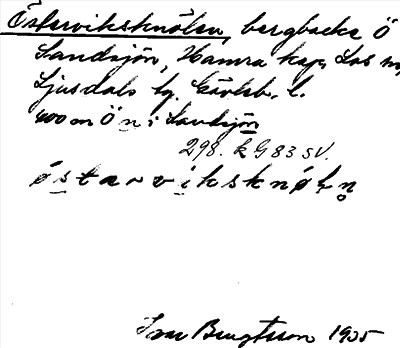 Österviksknölen, bergbacke Ö
Sandsjön, Hamra kap., Los sn,
Ljusdals tg. Gävleb. l.
400 m Ö n i Sandsjön
298. k G 83 SV.
östarviksknöļn̥
Ivar Bengtsson 1935